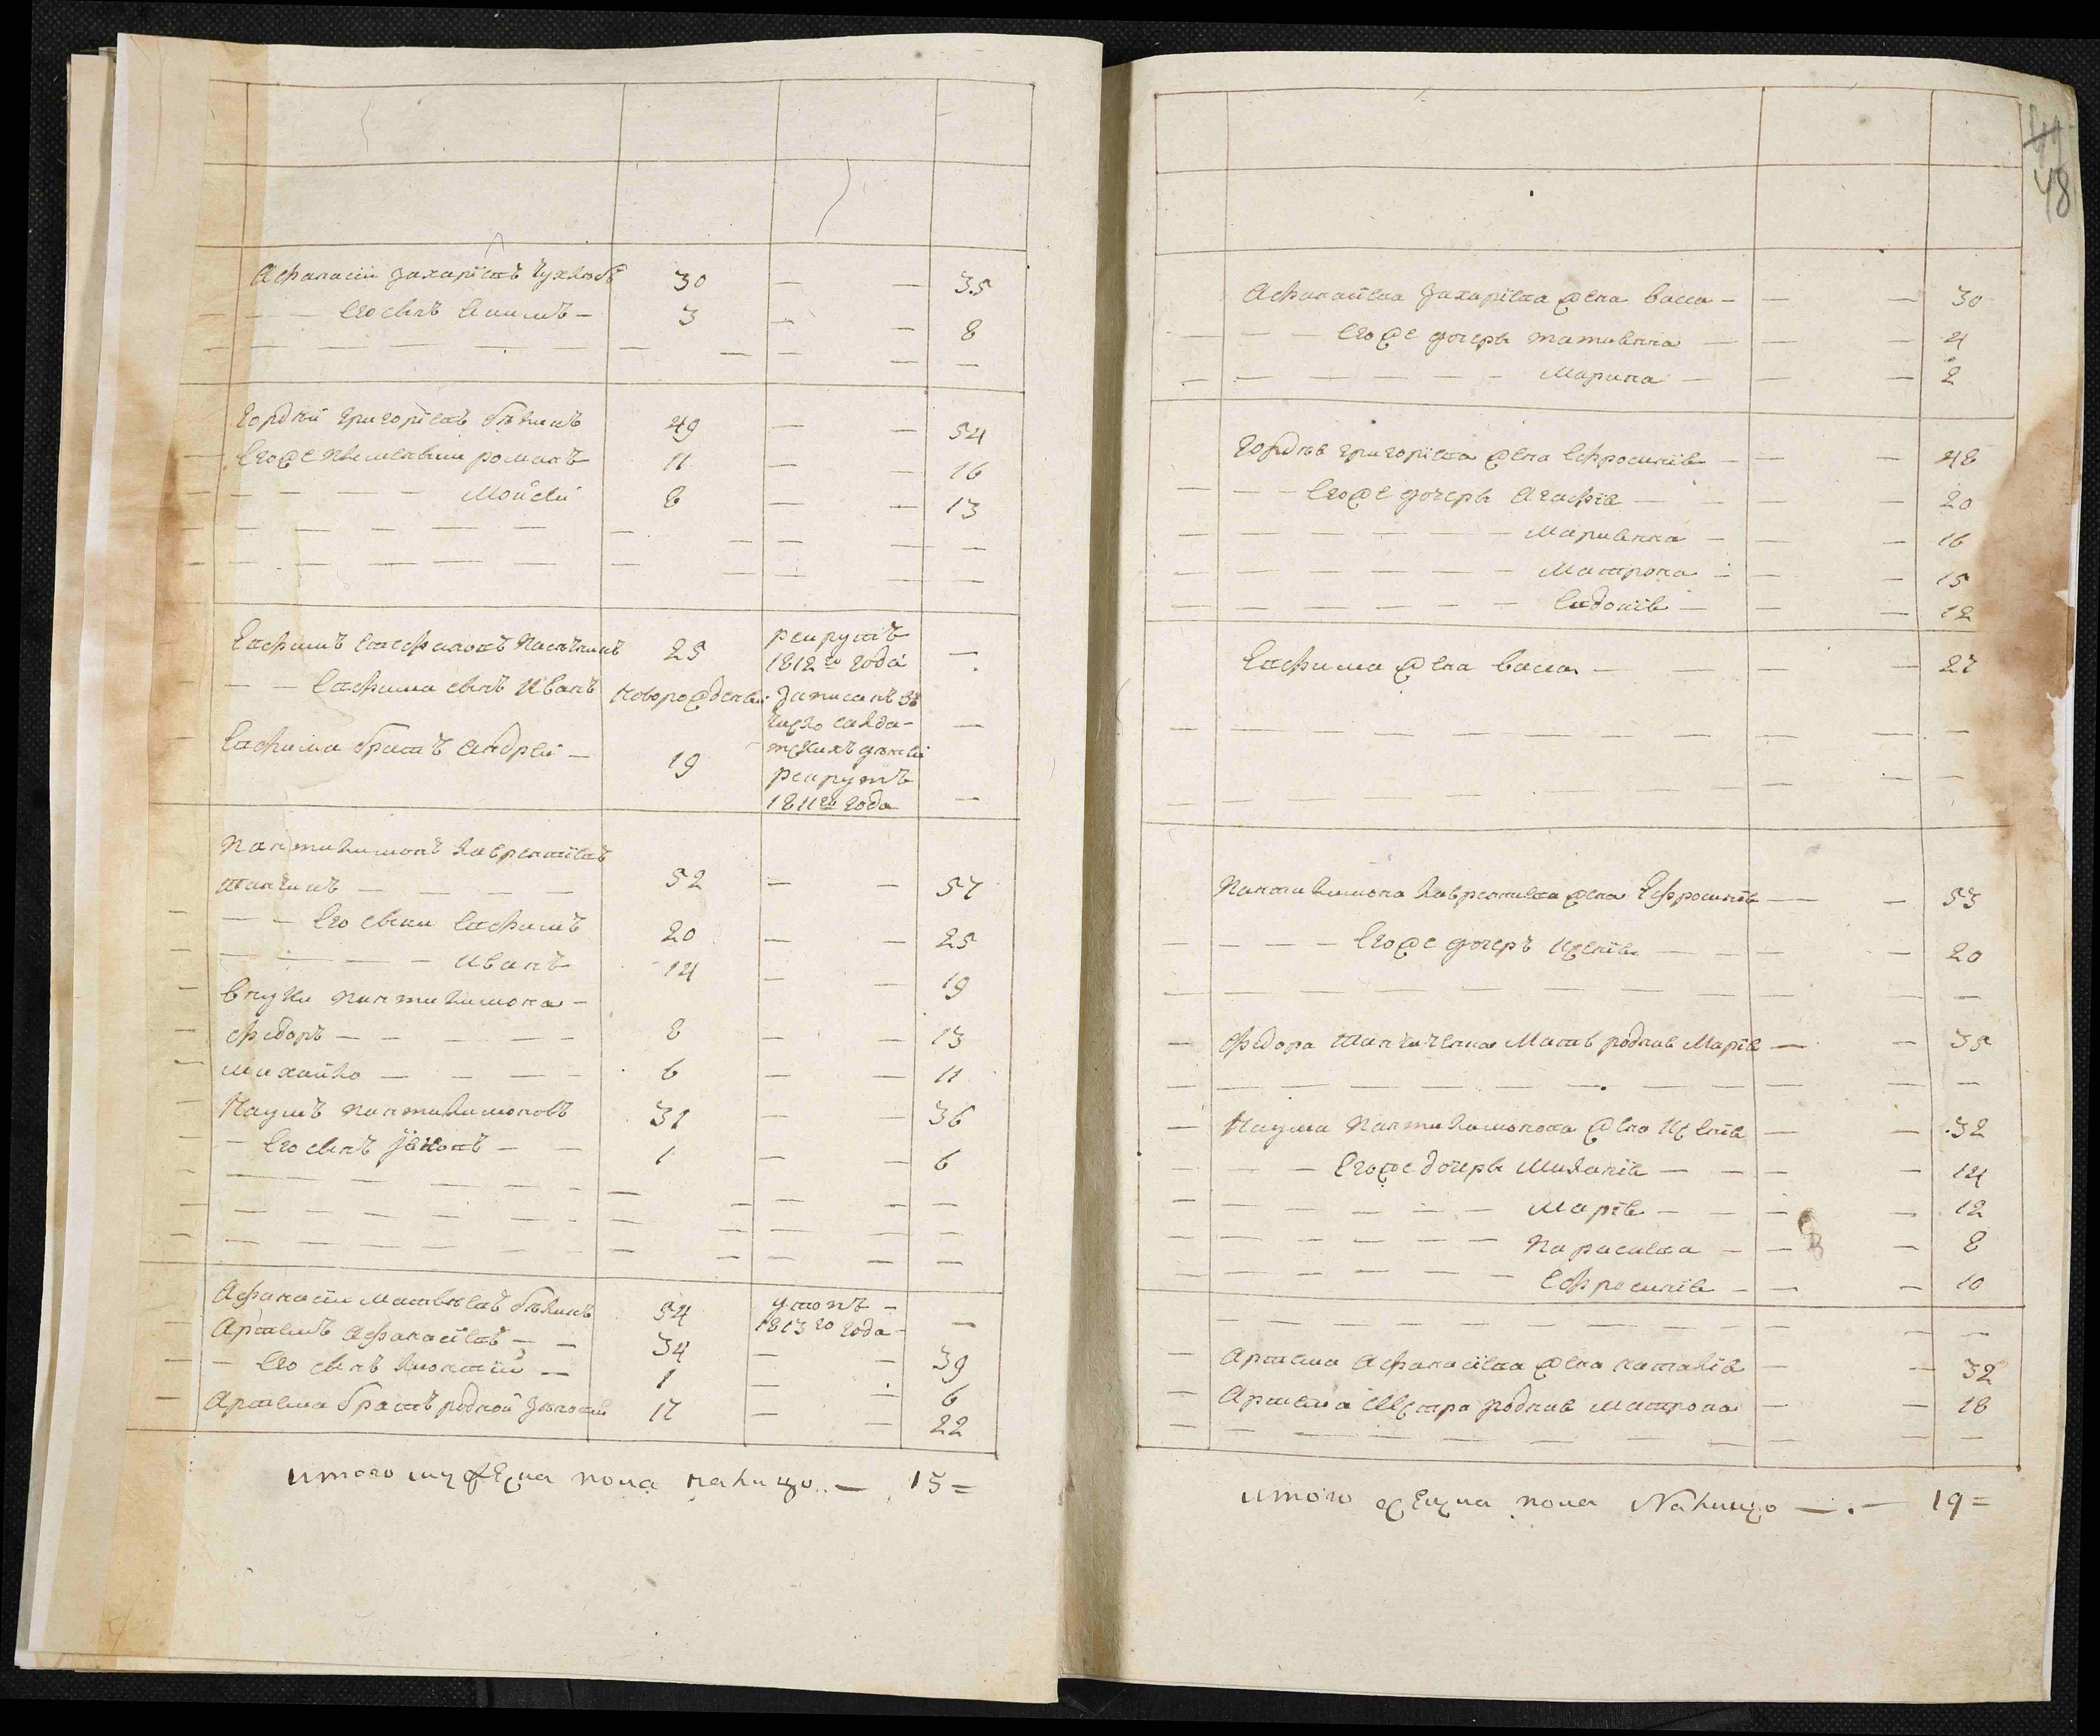 48
Афанасїи Захарїевъ 30 — — 35
— — Его сынъ — 3 — — 8
Гордѣй Григорїевъ бѣлинъ 49 — — 54
Егоже племянники романъ 11 — — 16
Мойсей 8 — — 13
Евфимъ Стефановъ 25 рекрутъ —
1812го года
— — Евфима сынъ Иванъ новорожденный записанъ въ
число салда-
тскихъ дѣтей —
Евфима братъ Андрей — 19 рекрутъ
1811го года —
Пантилимонъ Лаврентїевъ
танчинъ — 52 — — 57
— — Его сыни Евфимъ 20 — — 25
Иванъ 14 — — 19
Внуки Пантилимона —
Федоръ — 8 — — 13
Михайло — 6 — — 11
Наумъ Пантилимоновъ 31 — — 36
— Его сынъ — 1 — — 6
Афанасїи Матвѣевъ бѣлинъ 54 умотъ —
1813го года —
Артемъ Афанасїевъ — 34 — — 39
— Его сынъ Лионтїи — 1 — — 6
Артема братъ родной 17 — — 22
итого мужеска пола налицо — 15 =
Афанасїева Захарїева жена васса — — 30
Егоже дочерь татиянна — — 4
Марина — — 2
Гордѣя Григорїева жена Ефросинїя — — 48
Егоже дочерь Агафїя — — 20
Мариянна — — 16
Матрона — — 15
Евдокїя — — 12
Евфима жена васса — — 27
Пантилимона Лаврентиева жена Ефросинїя — — 53
Егоже дочерь Ксенїя — — 20
Федора мать родная Марїя — — 35
Наума Пантилимонова жена Ксенїя — — 32
Егоже дочерь Миланїя — — 14
Марїя — — 12
Параскева — — 8
Ефросинїя — — 10
Артема Афанасїева жена наталїя — — 32
Артема Сестра родная Матрона — — 18
итого женска пола Налицо — 19 =